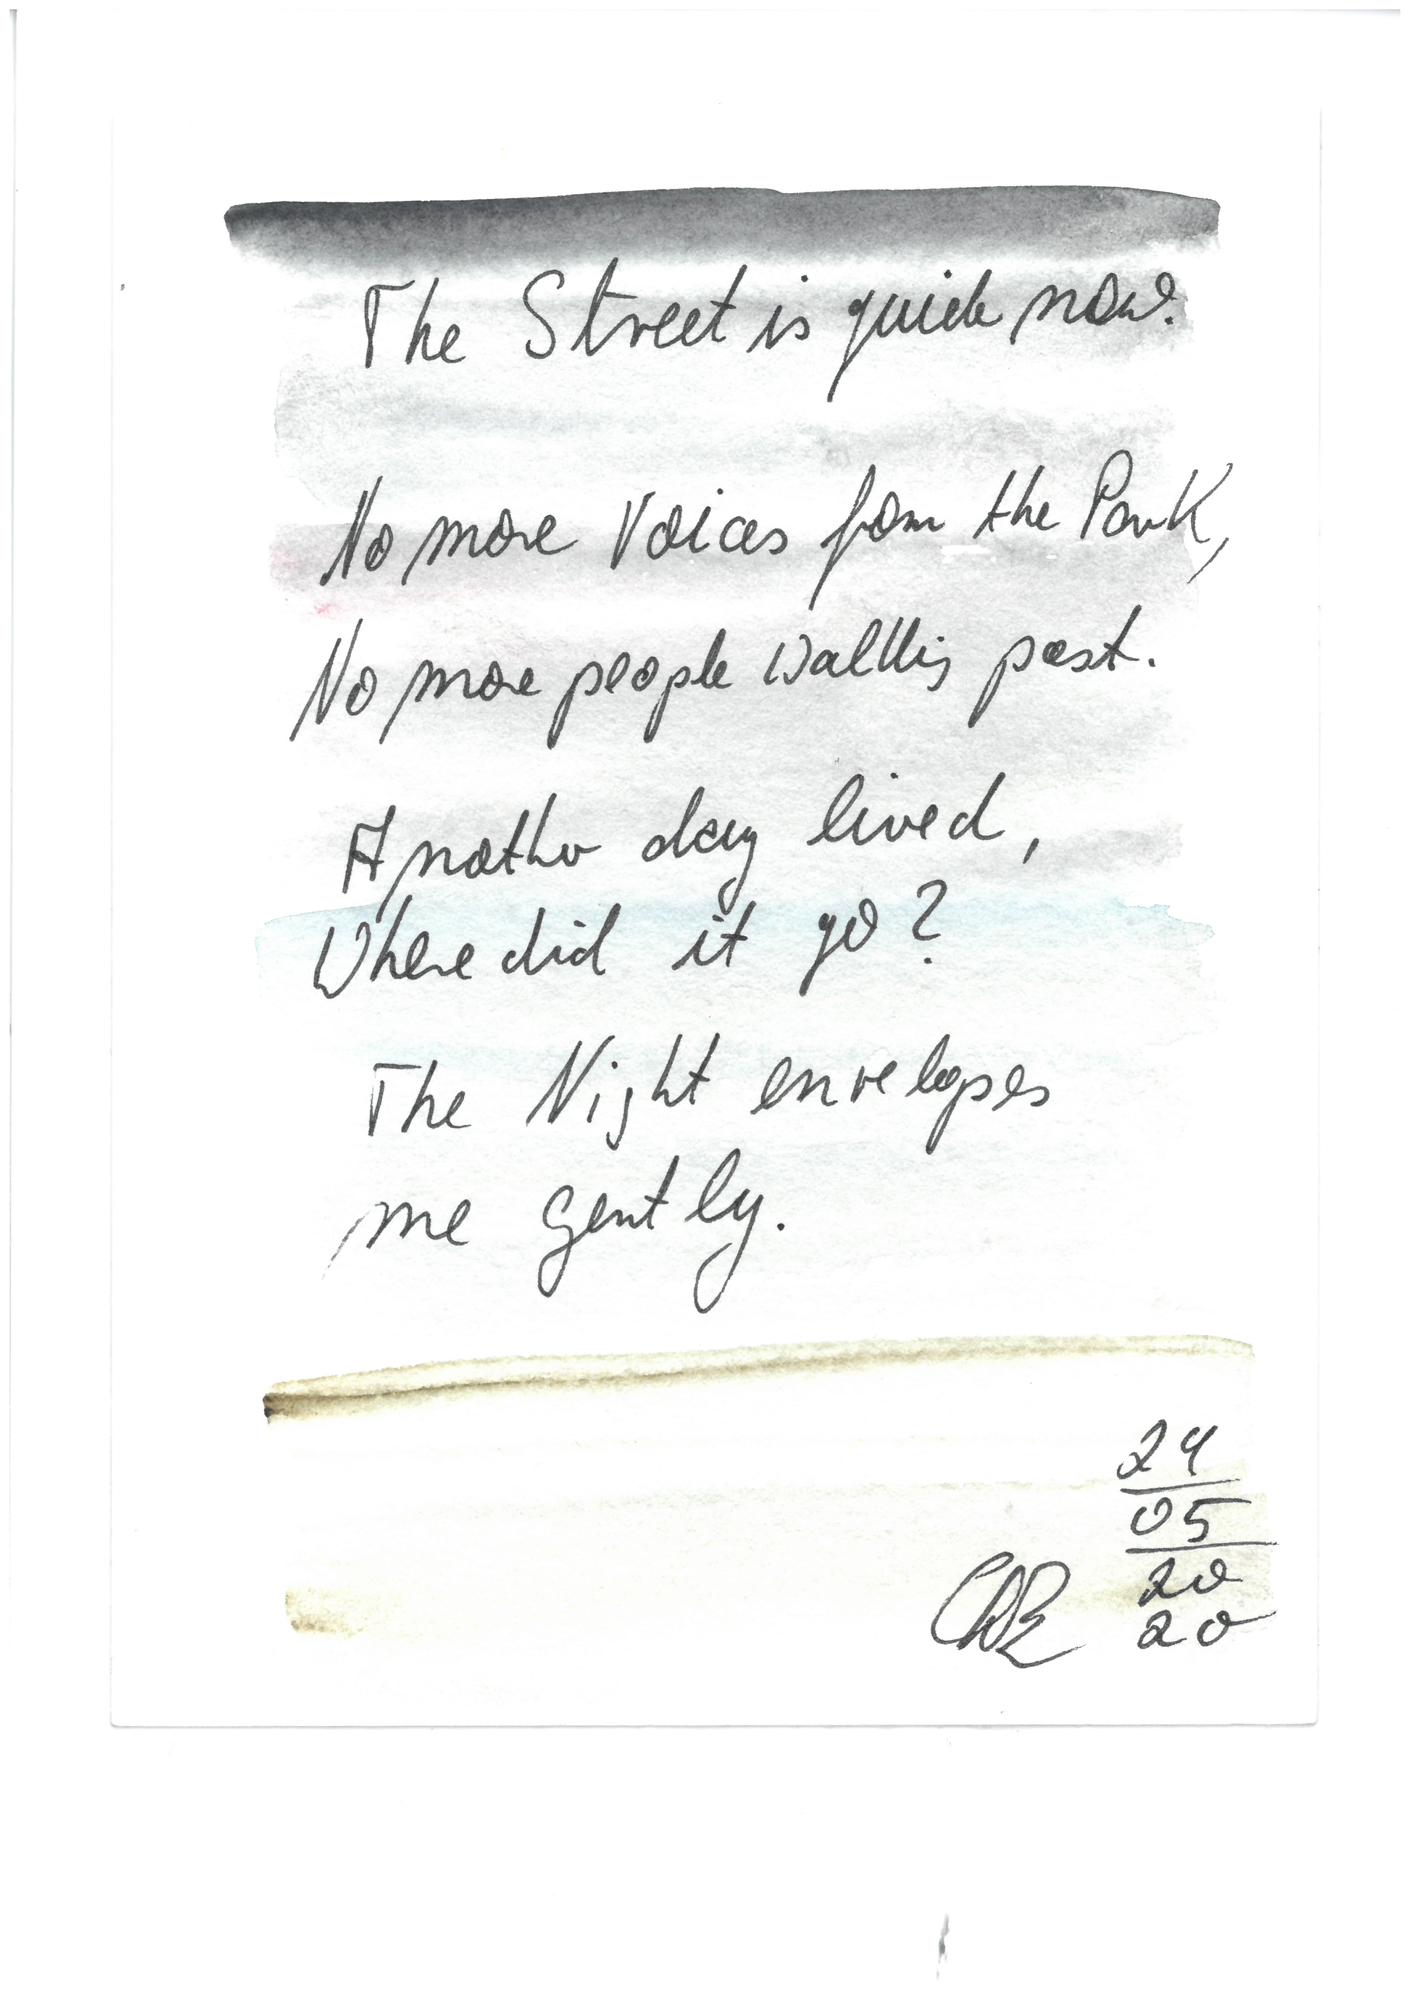 The Street is quide now.
No more Voices from the Park,
No more people walking past.
Another day lived,
Where did it go?
The Night envelopes
me gently.
24
05
20
20